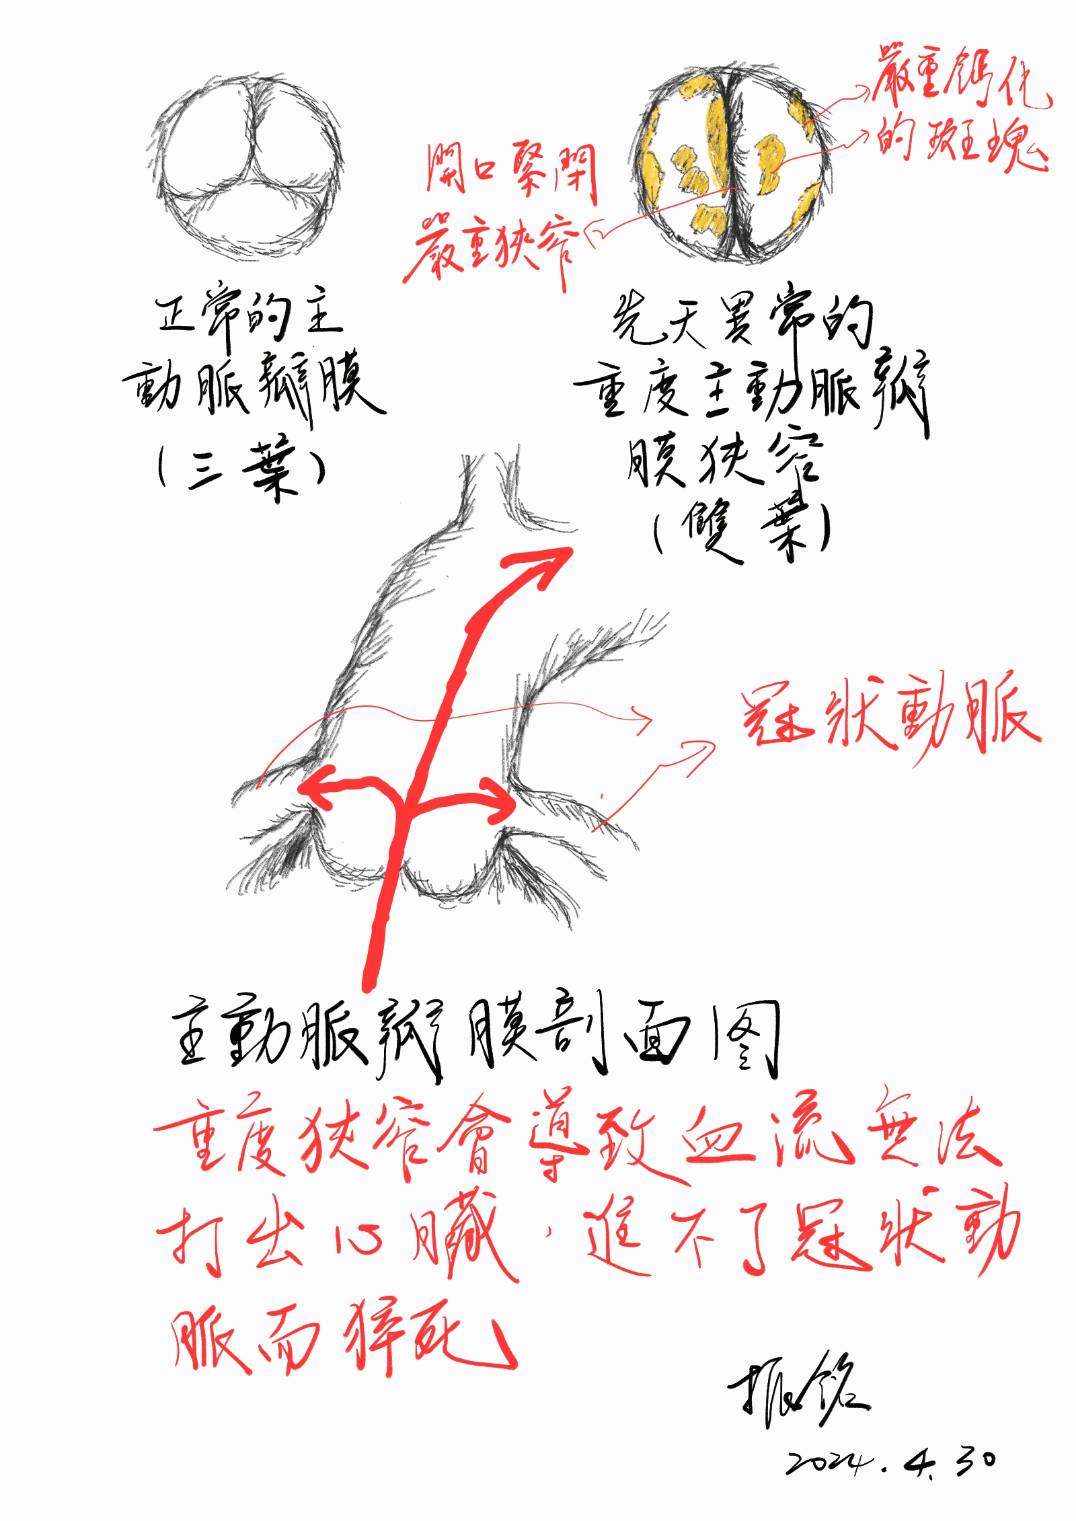 嚴重鈣化
的斑塊
開口緊閉
嚴重狹窄
正常的主
動脈瓣膜
(三葉)
先天異常的
重度主動脈瓣
膜狹窄
(雙葉)
冠狀動脈
主動脈瓣膜剖面图
重度狹窄會導致血流無法
打出心臟，進不了冠狀動
脈而猝死
振銘
2024.4.30